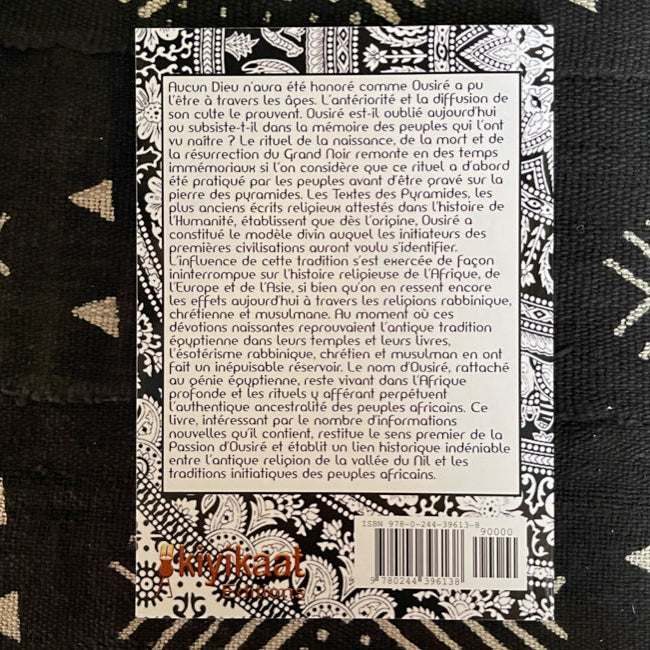 Aucun Dieu n'aura été honoré comme Ousiré a pu
l'être à travers les âges. L'antériorité et la diffusion de
son culte le prouvent. Ousiré est-il oublié aujourd'hui
ou subsiste-t-il dans la mémoire des peuples qui l'ont
vu naître ? Le rituel de la naissance, de la mort et de
la résurrection du Grand Noir remonte en des temps
immémoriaux si l'on considère que ce rituel a d'abord
été pratiqué par les peuples avant d'être gravé sur la
pierre des pyramides. Les Textes des Pyramides, les
plus anciens écrits religieux attestés dans l'histoire de
l'Humanité, établissent que dès l'origine, Ousiré a
constitué le modèle divin auquel les initiateurs des
premières civilisations auront voulu s'identifier.
L'influence de cette tradition s'est exercée de façon
ininterrompue sur l'histoire religieuse de l'Afrique, de
l'Europe et de l'Asie, si bien qu'on en ressent encore
les effets aujourd'hui à travers les religions rabbinique,
chrétienne et musulmane. Au moment où ces
dévotions naissantes reprouvaient l'antique tradition
égyptienne dans leurs temples et leurs livres,
l'ésotérisme rabbinique, chrétien et musulman en ont
fait un inépuisable réservoir. Le nom d'Ousiré, rattaché
au génie égyptienne, reste vivant dans l'Afrique
profonde et les rituels y afférant perpétuent
l'authentique ancestralité des peuples africains. Ce
livre, intéressant par le nombre d'informations
nouvelles qu'il contient, restitue le sens premier de la
Passion d'Ousiré et établit un lien historique indéniable
entre l'antique religion de la vallée du Nil et les
traditions initiatiques des peuples africains.
ISBN 978-0-244-39613-8
90000
9 780244 396138
kiyikaat
éditions